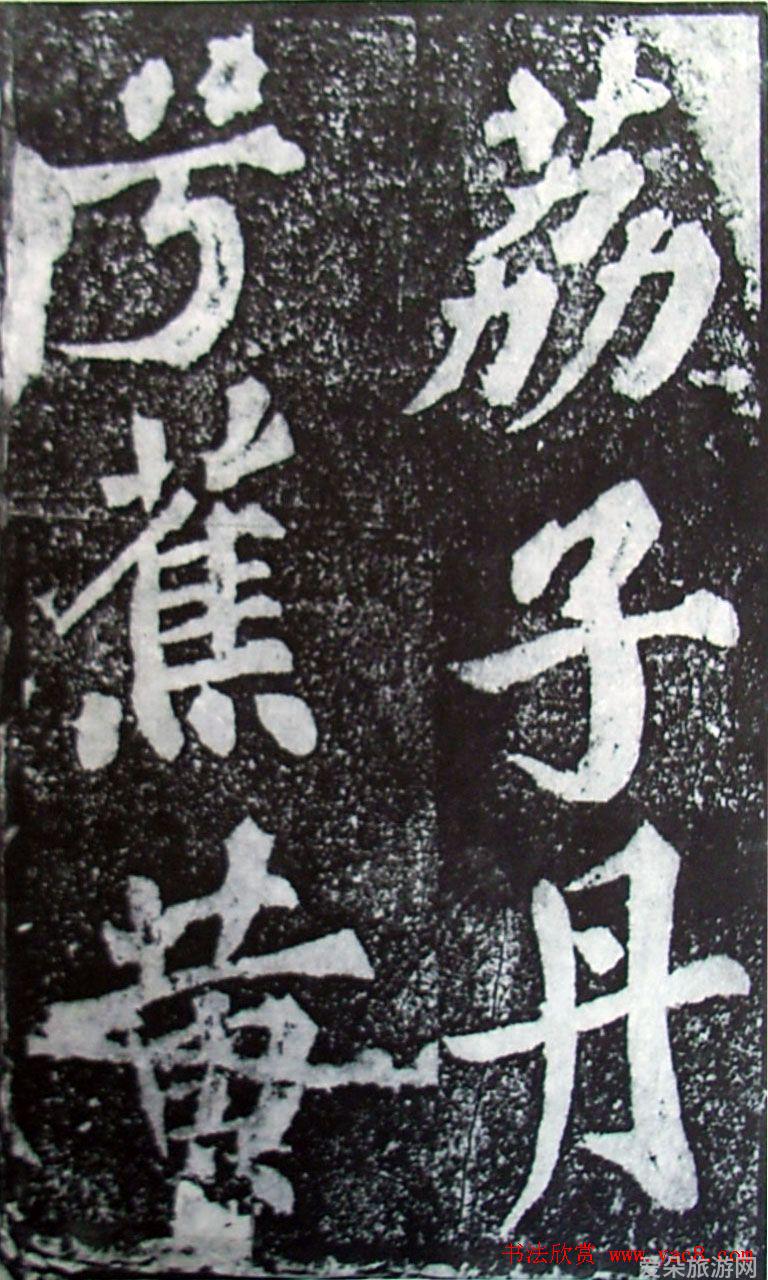 荔子丹
兮蕉黄
书法欣赏 www.yac8.com
爱朵旅游网